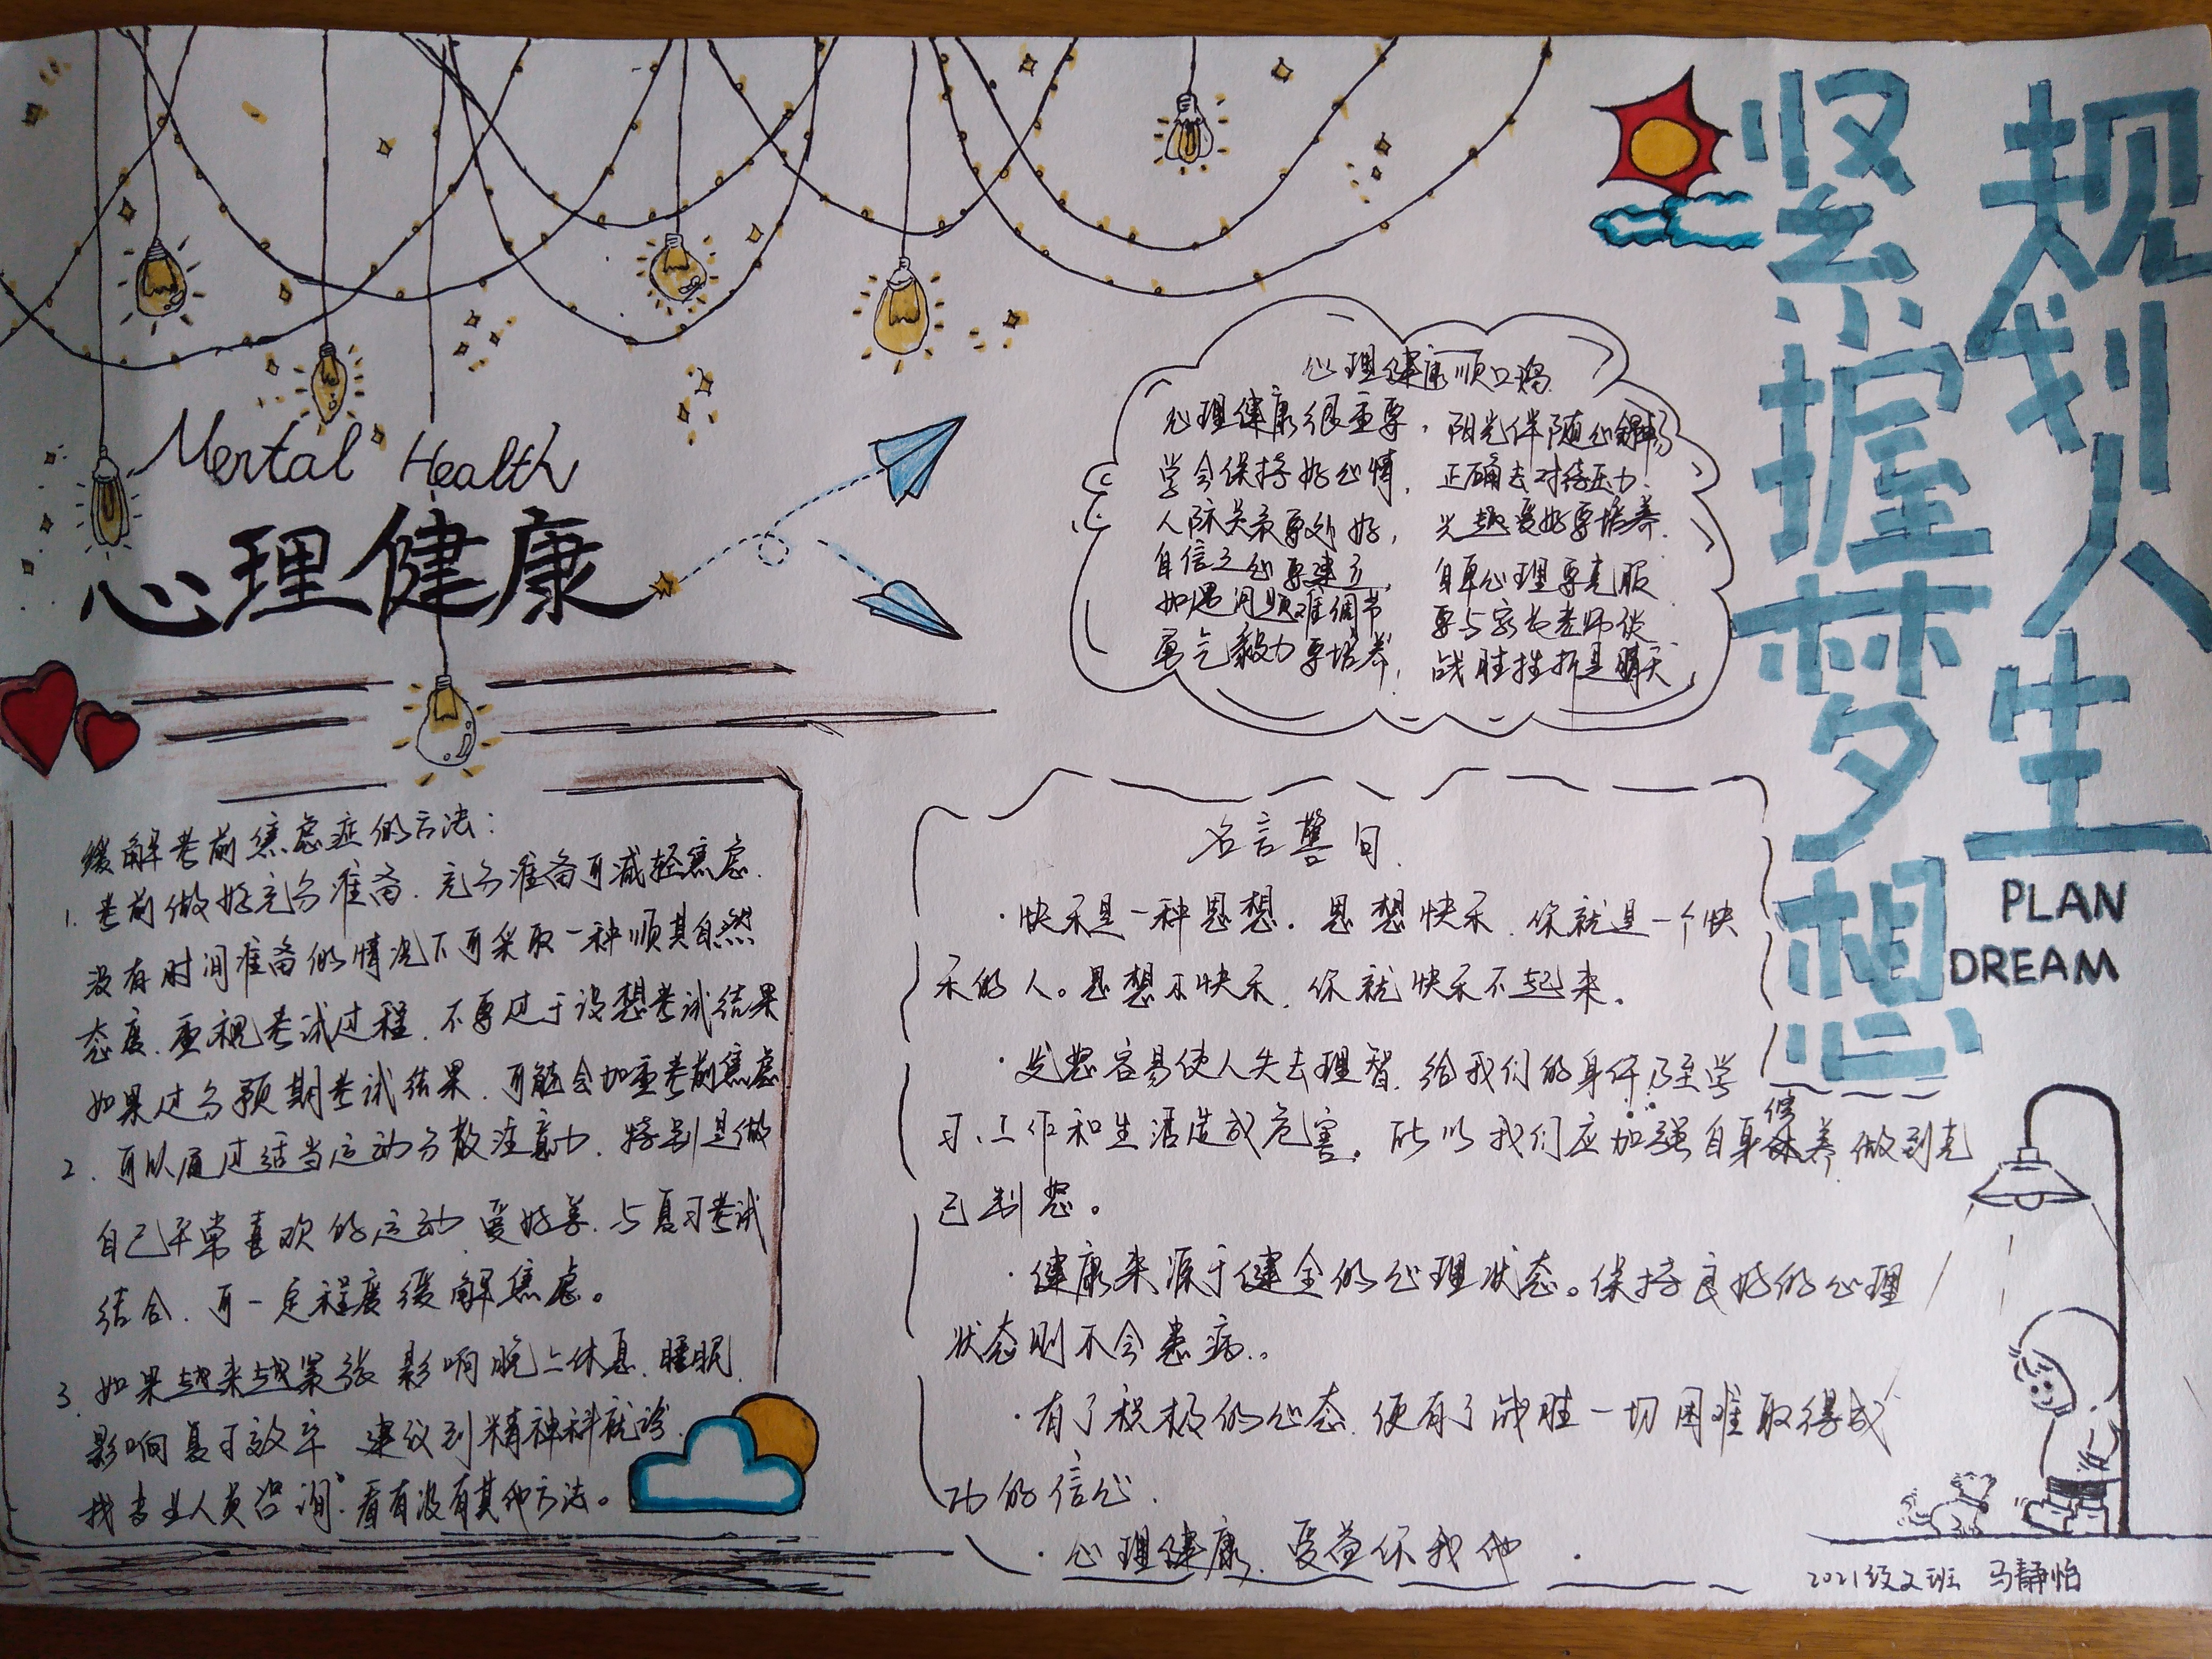 Mental Health
心理健康
缓解考前焦虑症的方法：
1. 考前做好充分准备. 充分准备可减轻焦虑.
没有时间准备的情况下可采取一种顺其自然
态度. 重视考试过程. 不要过于设想考试结果
如果过分预期考试结果. 可能会加重考前焦虑
2. 可以通过适当运动分散注意力. 特别是做
自己平常喜欢的运动. 爱好等. 与复习考试
结合. 可一定程度缓解焦虑。
3. 如果越来越紧张 影响晚上休息. 睡眠.
影响复习效率 建议到精神科就诊.
找专业人员咨询. 看有没有其他方法。
心理健康顺口溜
心理健康很重要, 阳光伴随心舒畅
学会保持好心情, 正确去对待压力.
人际关系要处好, 兴趣爱好要培养.
自信之心要建立, 自卑心理要克服
如遇问题难调节 要与家长老师谈
勇气毅力要培养, 战胜挫折是晴天.
名言警句.
·快乐是一种思想. 思想快乐. 你就是一个快
乐的人。思想不快乐. 你就快乐不起来。
·发怒容易使人失去理智. 给我们的身体乃至学
习、工作和生活造成危害. 所以我们应加强自身修养. 做到克
己制怒。
·健康来源于健全的心理状态。保持良好的心理
状态则不会患病。
·有了积极的心态. 便有了战胜一切困难取得成
功的信心.
·心理健康. 受益你我他.
规划人生
紧握梦想
PLAN
DREAM
2021级文班 马静怡